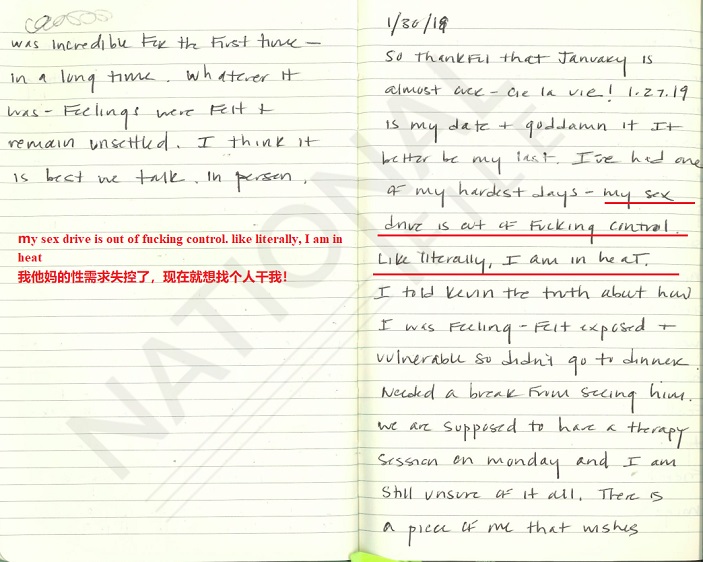 was incredible For the First time –
in a long time. Whatever it
was – Feelings were Felt +
remain unsettled. I think it
is best we talk. In person.
my sex drive is out of fucking control. like literally, I am in
heat
我他妈的性需求失控了，现在就想找个人干我！
1/30/19
So thankful that January is
almost over – cie la vie! 1.27.19
is my date + goddamn it It
better be my last. I've had one
of my hardest days – my sex
drive is out of Fucking control.
Like literally, I am in heat.
I told Kevin the truth about how
I was Feeling – Felt exposed +
vulnerable so didn't go to dinner.
Needed a break From seeing him.
We are supposed to have a therapy
session on monday and I am
still unsure of it all. There is
a piece of me that wishes
NATIONAL
FILE